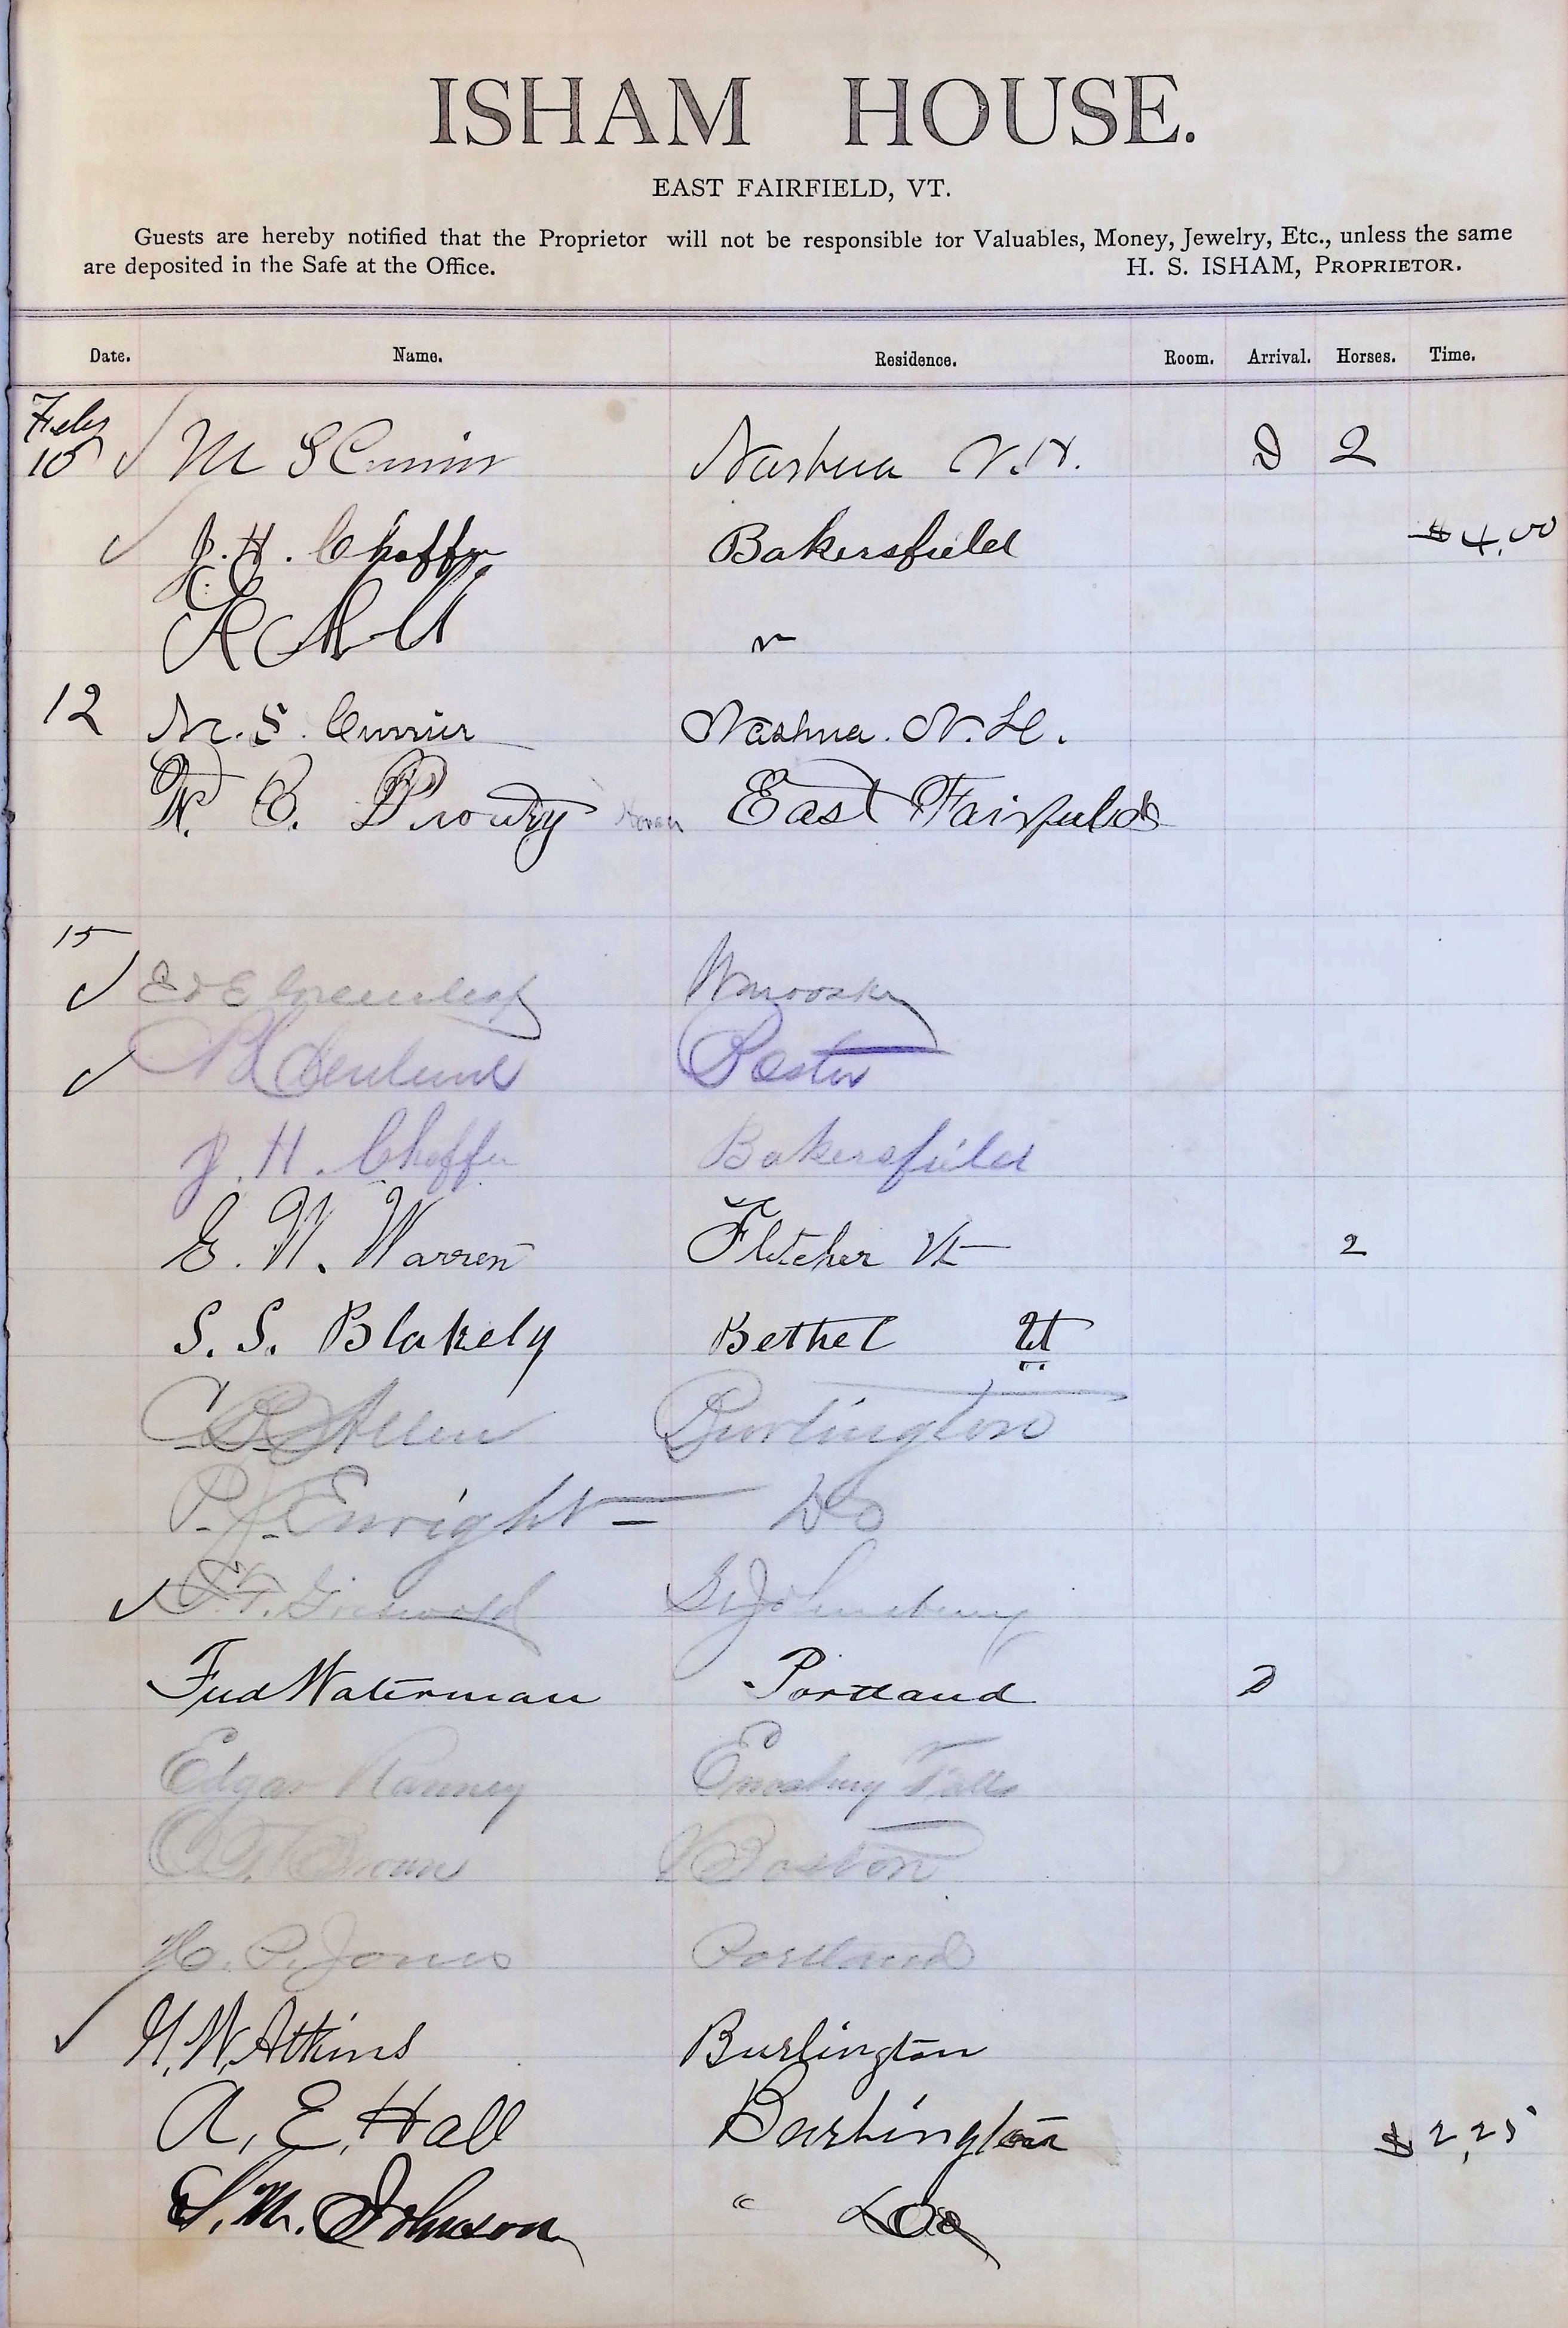 ISHAM HOUSE.
EAST FAIRFIELD, VT.
Guests are hereby notified that the Proprietor will not be responsible for Valuables, Money, Jewelry, Etc., unless the same
are deposited in the Safe at the Office. H. S. ISHAM, PROPRIETOR.
Date. Name. Residence. Room. Arrival. Horses. Time.
Feby
10 M S Currier Nashua N.H. D 2
J. H. Chaffee Bakersfield $4.00
12 M. S. Currier Nashua. N. H.
W. C. Prouty East Fairfield
15
Ed E Greenleaf Winooski
Boston
J. H. Chaffee Bakersfield
E. W. Warren Fletcher Vt 2
S. S. Blakely Bethel Vt
C B Allen Burlington
P. J. Enright Do
F. T. Griswold St Johnsbury
Fred Waterman Portland D
Edgar Ranney Enosburg Falls
Boston
H. P. Jones Portland
H. W. Atkins Burlington
A. E. Hall Burlington $2,25
S. M. Johnson " Do